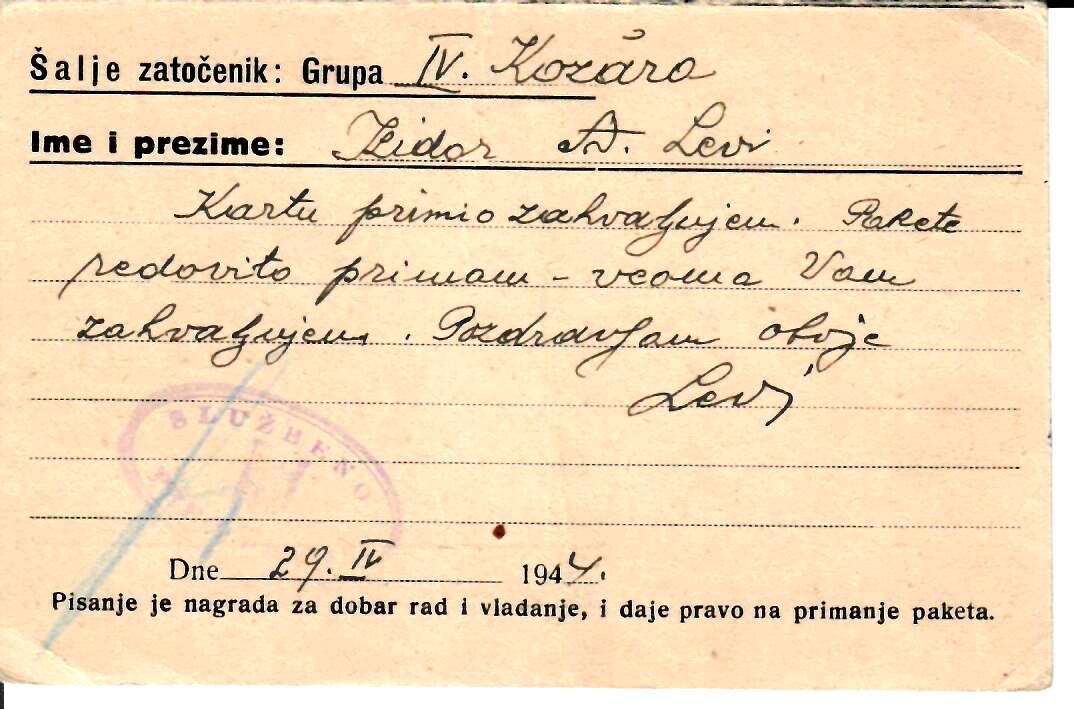 Šalje zatočenik: Grupa IV. Kozára
Ime i prezime: Izidor A. Levi
Kartu primio zahvaljujem. Pakete
redovito primam - veoma Vam
zahvaljujem. Pozdravljam oboje
Levi
SLUŽBENO
Dne 29. IV 1944.
Pisanje je nagrada za dobar rad i vladanje, i daje pravo na primanje paketa.